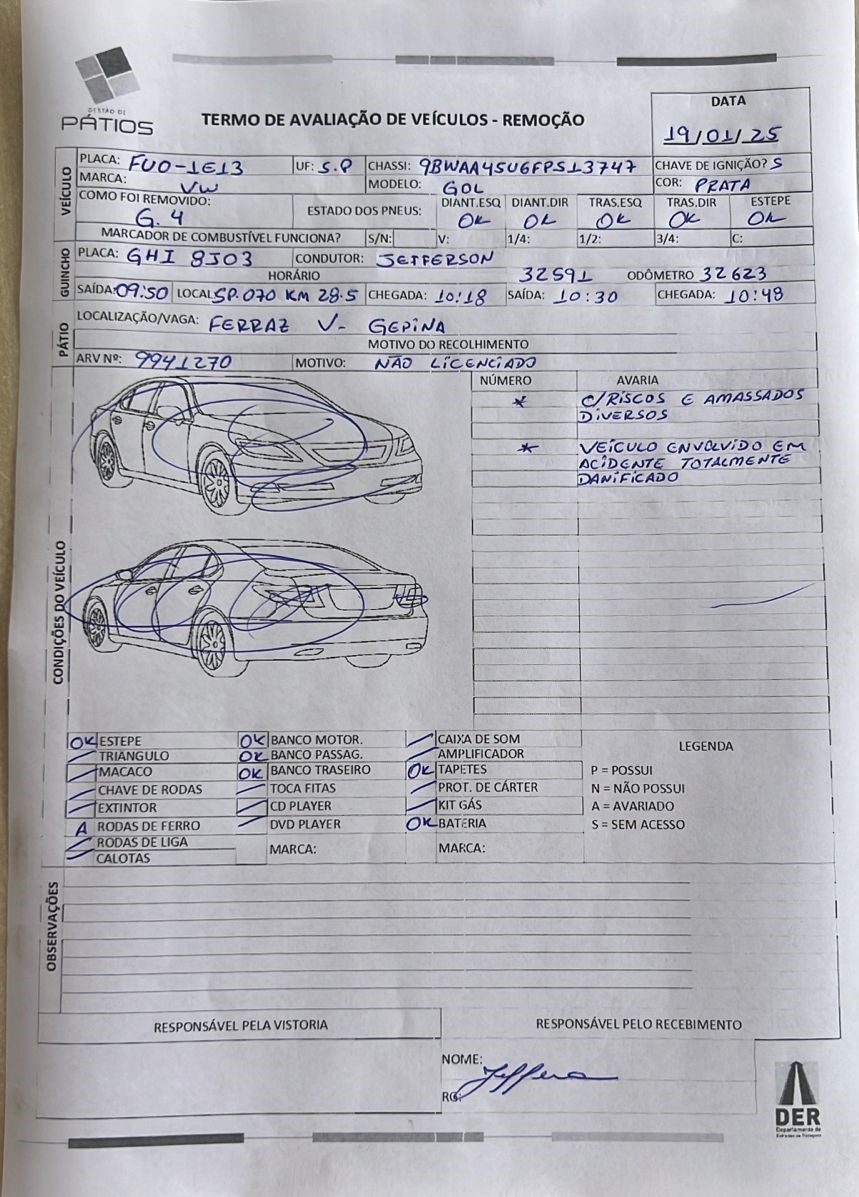 GESTÃO DE
PÁTIOS
TERMO DE AVALIAÇÃO DE VEÍCULOS - REMOÇÃO
DATA
19/01/25
VEÍCULO
PLACA: FUO-1E13 UF: S.P CHASSI: 9BWAA45U6FPS13747 CHAVE DE IGNIÇÃO? S
MARCA: VW MODELO: GOL COR: PRATA
COMO FOI REMOVIDO: G.4 ESTADO DOS PNEUS: DIANT.ESQ OK DIANT.DIR OK TRAS.ESQ OK TRAS.DIR OK ESTEPE OK
MARCADOR DE COMBUSTÍVEL FUNCIONA? S/N: V: 1/4: 1/2: 3/4: C:
GUINCHO
PLACA: GHI 8J03 CONDUTOR: JEFFERSON
HORÁRIO 32591 ODÔMETRO 32623
SAÍDA: 09:50 LOCAL SP.070 KM 28.5 CHEGADA: 10:18 SAÍDA: 10:30 CHEGADA: 10:48
PÁTIO
LOCALIZAÇÃO/VAGA: FERRAZ V- GEPINA
MOTIVO DO RECOLHIMENTO
ARV Nº: 9941270 MOTIVO: NÃO LICENCIADO
CONDIÇÕES DO VEÍCULO
NÚMERO AVARIA
* C/RISCOS E AMASSADOS
DIVERSOS
* VEÍCULO ENVOLVIDO EM
ACIDENTE TOTALMENTE
DANIFICADO
OK ESTEPE OK BANCO MOTOR. CAIXA DE SOM LEGENDA
TRIÂNGULO OK BANCO PASSAG. AMPLIFICADOR
MACACO OK BANCO TRASEIRO OK TAPETES P = POSSUI
CHAVE DE RODAS TOCA FITAS PROT. DE CÁRTER N = NÃO POSSUI
EXTINTOR CD PLAYER KIT GÁS A = AVARIADO
A RODAS DE FERRO DVD PLAYER OK BATERIA S = SEM ACESSO
RODAS DE LIGA MARCA: MARCA:
CALOTAS
OBSERVAÇÕES
RESPONSÁVEL PELA VISTORIA RESPONSÁVEL PELO RECEBIMENTO
NOME:
RG:
DER
Departamento de
Estradas de Rodagem